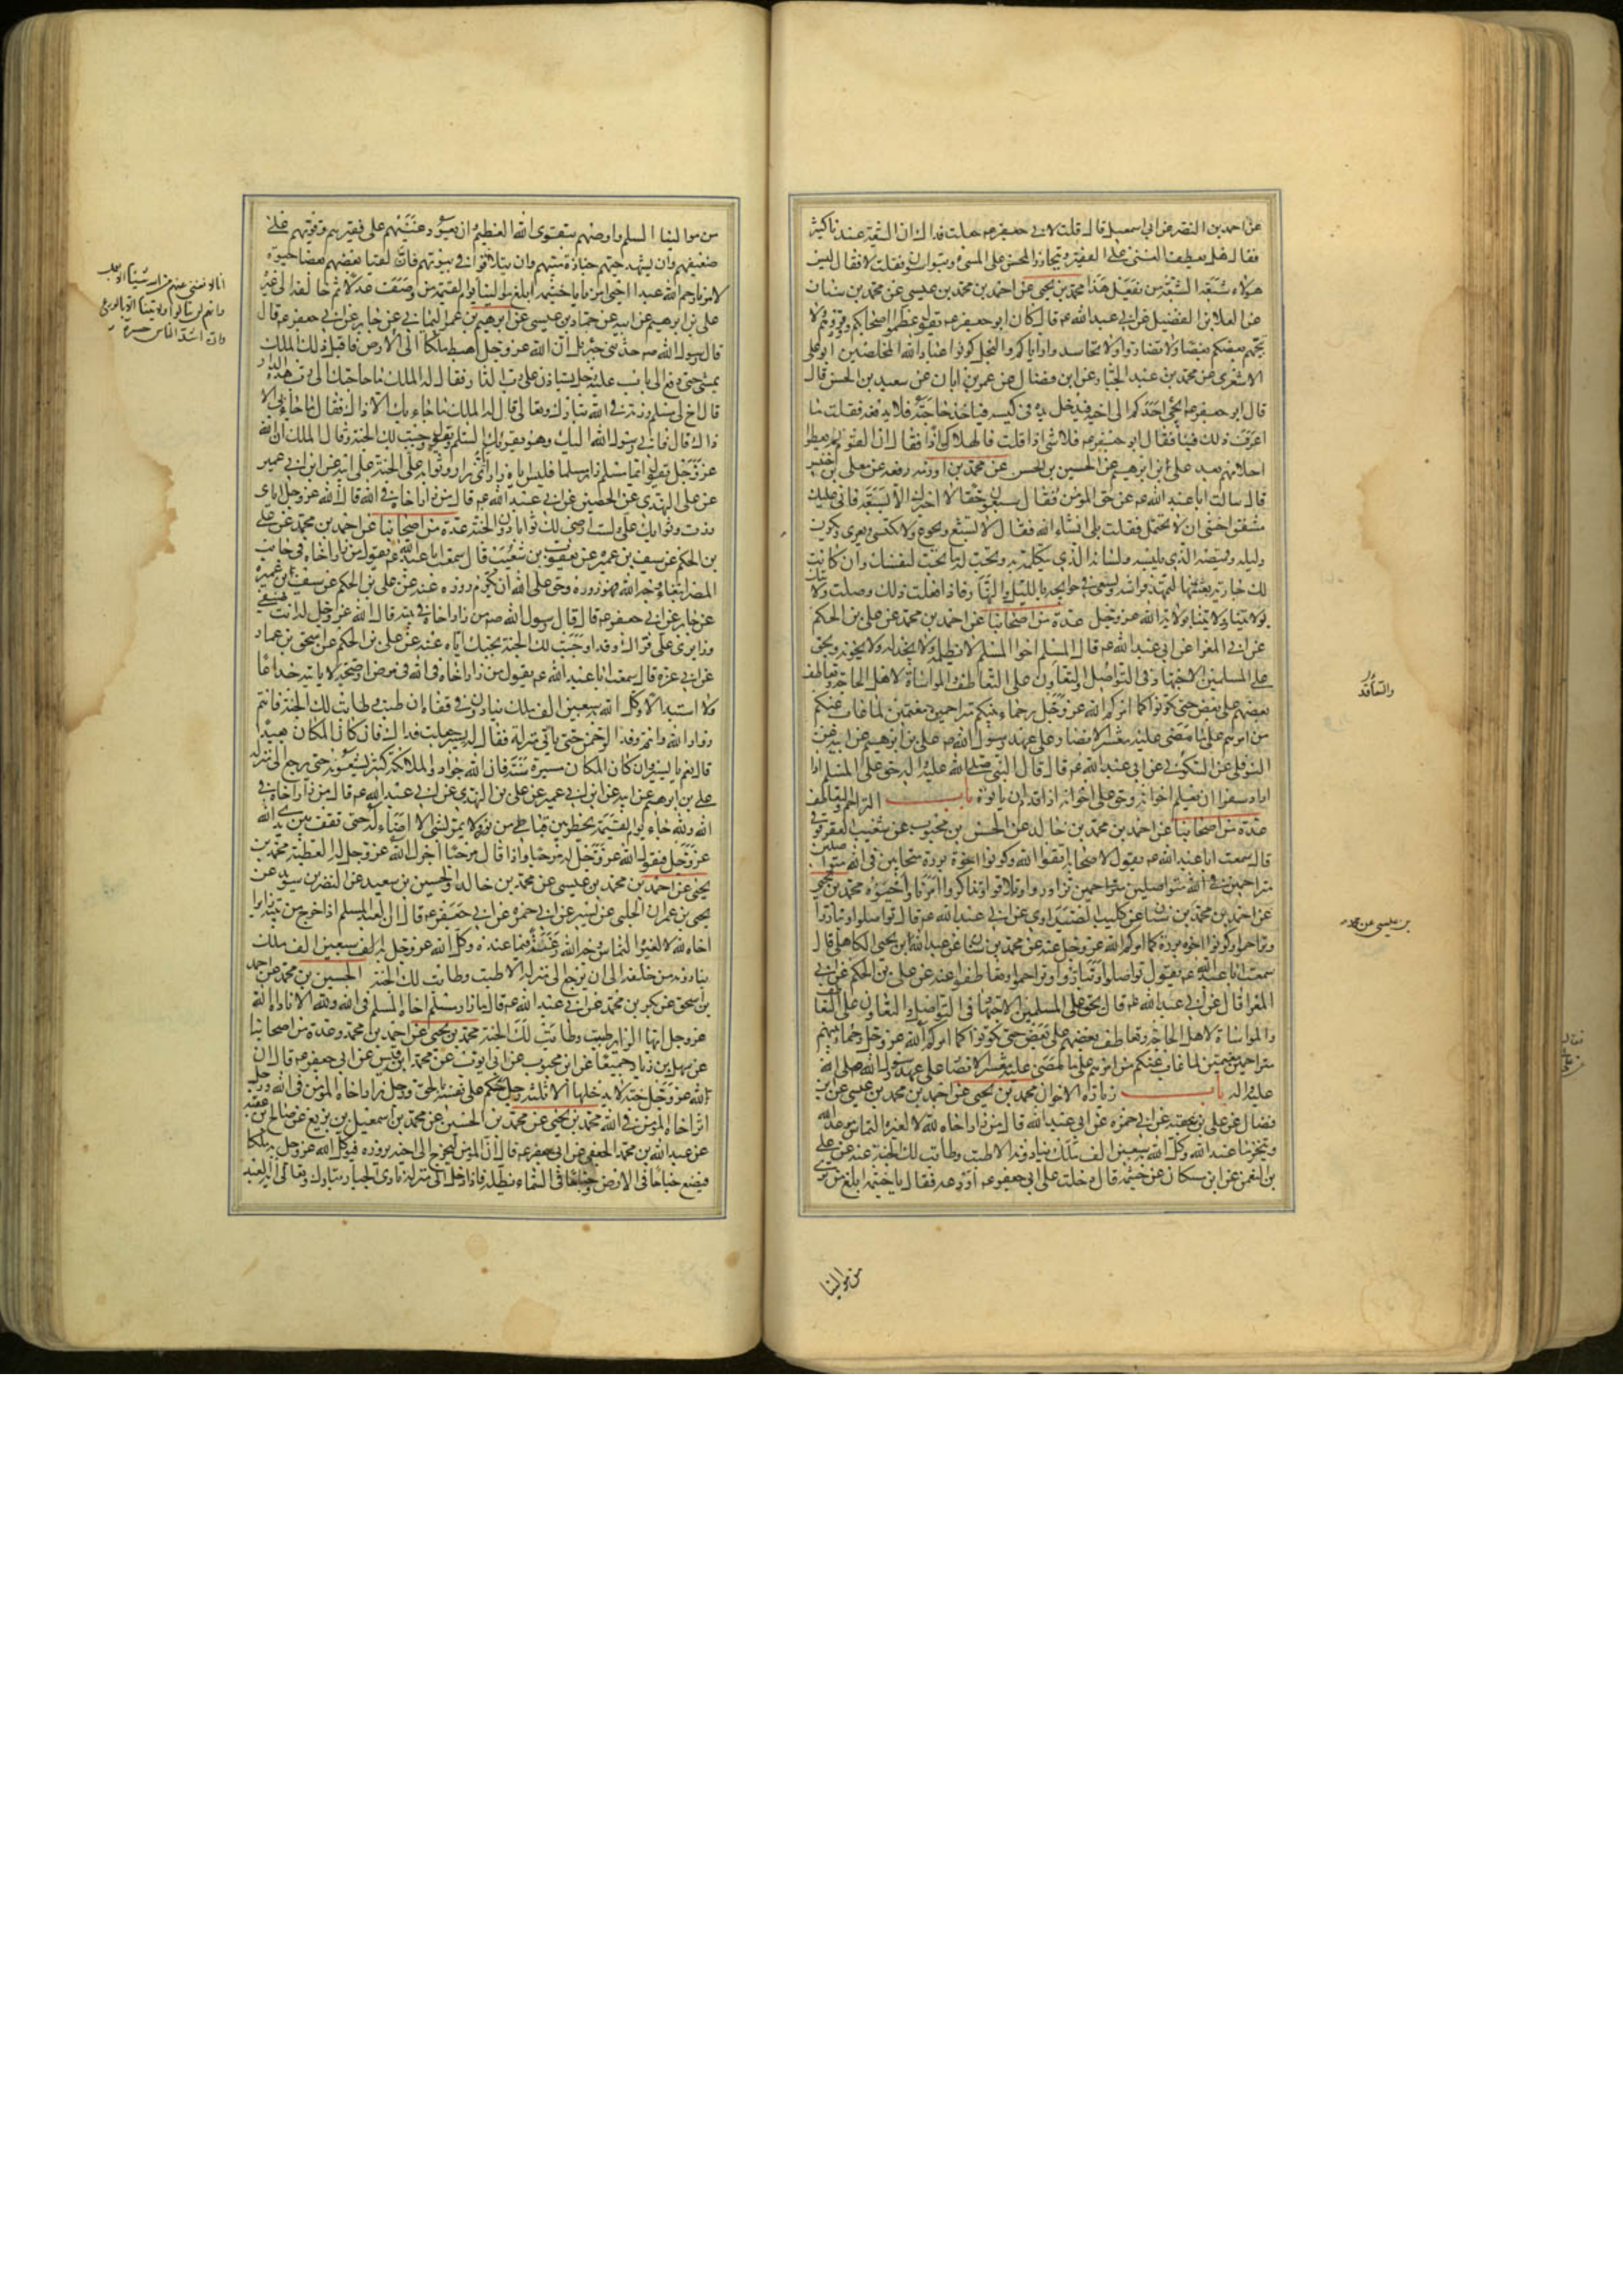 عن احمد بن النضر عن ابي اسمعيل قال قلت لابي جعفر عم جعلت فداك ان الشيعة عندنا كثير
فقال هل يعطف الغني على الفقير ويتجاوز المحسن على المسئ ويتواسون فقلت لا فقال ليس
هؤلاء شيعة الشيعة من يفعل هذا محمد بن يحيى عن احمد بن محمد بن عيسى عن محمد بن سنان
عن العلا بن الفضيل عن ابي عبد الله عم قال كان ابو جعفر عم يقول عظموا اصحابكم ووقروهم ولا
يتجهم بعضكم بعضا ولا تضاروا ولا تحاسدوا واياكم والبخل كونوا عباد الله المخلصين ابو علي
الاشعري عن محمد بن عبد الجبار عن ابن فضال عن عمر بن ابان عن سعيد بن الحسن قال
قال ابو جعفر عم ايجئ احدكم الى اخيه فيدخل يده في كيسه فياخذ حاجته فلا يدفعه فقلت ما
اعرف ذلك فينا فقال ابو جعفر عم فلا شئ اذا قلت فالهلاك اذا فقال ان القوم لم يعطوا
احلامهم بعد علي بن ابرهيم عن الحسين بن الحسن عن محمد بن اورمه رفعه عن معلى بن خنيس
قال سالت ابا عبد الله عم عن حق المؤمن فقال سبعون حقا لا اخبرك الا بسبعة فاني عليك
مشفق اخشى ان لا تحتمل فقلت بلى انشاء الله فقال لا تشبع ويجوع ولا تكتسي ويعرى وتكون
دليله وقميصه الذي يلبسه ولسانه الذي يتكلم به وتحب له ما تحب لنفسك وان كانت
لك جارية بعثتها لتمهد فراشه وتسعى في حوايجه بالليل والنهار فاذا فعلت ذلك وصلت ولايتك
بولايتنا وولايتنا بولاية الله عز وجل عدة من اصحابنا عن احمد بن محمد عن علي بن الحكم
عن ابي المغرا عن ابي عبد الله عم قال المسلم اخو المسلم لا يظلمه ولا يخذله ولا يخونه ويحق
على المسلمين الاجتهاد في التواصل والتعاون على التعاطف والمواساة لاهل الحاجة وتعاطف
بعضهم على بعض حتى تكونوا كما امركم الله عز وجل رحماء بينكم متراحمين مغتمين لما غاب عنكم
من امرهم على ما مضى عليه معشر الانصار على عهد رسول الله ص علي بن ابرهيم عن ابيه عن
النوفلي عن السكوني عن ابي عبد الله عم قال قال النبي صلى الله عليه واله حق على المسلم اذا
اراد سفرا ان يعلم اخوانه وحق على اخوانه اذا قدم ان ياتوه باب التراحم والتعاطف
عدة من اصحابنا عن احمد بن محمد بن خالد عن الحسن بن محبوب عن شعيب العقرقوفي
قال سمعت ابا عبد الله عم يقول لاصحابه اتقوا الله وكونوا اخوة بررة متحابين في الله متواصلين
متراحمين تزاوروا وتلاقوا وتذاكروا امرنا واحيوه محمد بن يحيى
عن احمد بن محمد بن سنان عن كليب الصيداوي عن ابي عبد الله عم قال تواصلوا وتباروا
وتراحموا وكونوا اخوة بررة كما امركم الله عز وجل عنه عن محمد بن سنان عن عبد الله بن يحيى الكاهلي قال
سمعت ابا عبد الله عم يقول تواصلوا وتباروا وتراحموا وتعاطفوا عنه عن علي بن الحكم عن ابي
المغرا قال عن ابي عبد الله عم قال يحق على المسلمين الاجتهاد في التواصل والتعاون على التعاطف
والمواساة لاهل الحاجة وتعاطف بعضهم على بعض حتى تكونوا كما امركم الله عز وجل رحماء بينهم
متراحمين مغتمين لما غاب عنكم من امرهم على ما مضى عليه معشر الانصار على عهد رسول الله صلى الله
عليه واله باب زيارة الاخوان محمد بن يحيى عن احمد بن محمد بن عيسى عن ابن
فضال عن علي بن عقبه عن ابي حمزه عن ابي عبد الله قال من زار اخاه لله لا لغيره التماس موعد الله
وتنجز ما عند الله وكل الله به سبعين الف ملك ينادونه الا طبت وطابت لك الجنة عنه عن علي
بن النعمن عن ابن مسكان عن خيثمه قال دخلت على ابي جعفر عم اودعه فقال يا خيثمه ابلغ من ترى
من موالينا
والتعاقد
بن عيسى عن محمد
من موالينا السلم واوصهم بتقوى الله العظيم وان يعود غنيهم على فقيرهم وقويهم على
ضعيفهم وان يشهد حيهم جنازة ميتهم وان يتلاقوا في بيوتهم فان لقيا بعضهم بعضا حيوة
لامرنا رحم الله عبدا احيى امرنا يا خيثمه ابلغ موالينا وصف عدلا ثم خالفه الى غيره
علي بن ابرهيم عن ابيه عن حماد بن عيسى عن ابرهيم بن عمر اليماني عن جابر عن ابي جعفر عم قال
قال رسول الله ص حدثني جبرئل ان الله عز وجل اهبط ملكا الى الارض فاقبل ذلك الملك
يمشي حتى دفع الى باب عليه رجل يستاذن على رب الدار فقال له الملك ما حاجتك الى رب هذه الدار
قال اخ لي مسلم زرته في الله تبارك وتعالى قال له الملك ما جاء بك الا ذاك فقال ما جاء بي الا
ذاك قال فاني رسول الله اليك وهو يقرئك السلم ويقول وجبت لك الجنة وقال الملك ان الله
عز وجل يقول ايما مسلم زار مسلما فليس اياه زار اياي زار وثوابه على الجنة علي عن ابيه عن ابن ابي عمير
عن علي النهدي عن الحصين عن ابي عبد الله عم قال من زار اخاه في الله قال الله عز وجل اياي
زرت وثوابك علي ولست ارضى لك ثوابا دون الجنة عدة من اصحابنا عن احمد بن محمد عن علي
بن الحكم عن سيف بن عميره عن يعقوب بن شعيب قال سمعت ابا عبد الله عم يقول من زار اخاه في جانب
المصر ابتغاء وجه الله فهو زوره وحق على الله ان يكرم زوره عنه عن علي بن الحكم عن سيف بن عميرة
عن جابر عن ابي جعفر عم قال قال رسول الله ص من زار اخاه في بيته قال الله عز وجل له انت ضيفي
وزايري علي قراك وقد اوجبت لك الجنة بحبك اياه عنه عن علي بن الحكم عن اسحق بن عمار
عن ابي عزه قال سمعت ابا عبد الله عم يقول من زار اخاه في الله في مرض او صحة لا ياتيه خداعا
ولا استبدالا وكل الله به سبعين الف ملك ينادون في قفاه ان طبت وطابت لك الجنة فانتم
زوار الله وانتم وفد الرحمن حتى ياتي منزله فقال له يسير جعلت فداك فان كان المكان بعيدا
قال نعم يا يسير وان كان المكان مسيرة سنة فان الله جواد والملائكة كثير يشيعونه حتى يرجع الى منزله
علي بن ابرهيم عن ابيه عن ابن ابي عمير عن علي بن النهدي عن ابي عبد الله عم قال من زار اخاه في
الله ولله جاء يوم القيمة يخطر بين قباطي من نور لا يمر بشئ الا اضاء له حتى يقف بين يدي الله
عز وجل فيقول الله عز وجل له مرحبا واذا قال مرحبا اجزل الله عز وجل له العطية محمد بن
يحيى عن احمد بن محمد بن عيسى عن محمد بن خالد والحسين بن سعيد عن النضر بن سويد عن
يحيى بن عمران الحلبي عن بشير عن ابي حمزه عن ابي جعفر عم قال ان العبد المسلم اذا خرج من بيته زايرا
اخاه لله لا لغيره التماس وجه الله رغبة فيما عنده وكل الله عز وجل به الف سبعين الف ملك
ينادونه من خلفه الى ان يرجع الى منزله الا طبت وطابت لك الجنة الحسين بن محمد عن احمد
بن اسحق عن بكر بن محمد عن ابي عبد الله عم قال ما زار مسلم اخاه المسلم في الله ولله الا ناداه الله
عز وجل ايها الزاير طبت وطابت لك الجنة محمد بن يحيى عن احمد بن محمد وعدة من اصحابنا
عن سهل بن زياد جميعا عن ابن محبوب عن ابي ايوب عن محمد بن قيس عن ابي جعفر عم قال ان
لله عز وجل جنة لا يدخلها الا ثلثه رجل حكم على نفسه بالحق ورجل زار اخاه المؤمن في الله ورجل
اثر اخاه المؤمن في الله محمد بن يحيى عن محمد بن الحسين عن محمد بن اسمعيل بن بزيع عن صالح بن عقبه
عن عبد الله بن محمد الجعفي عن ابي جعفر عم قال ان المؤمن ليخرج الى اخيه يزوره فيوكل الله عز وجل به ملكا
فيضع جناحا في الارض وجناحا في السماء يظله فاذا دخل الى منزله نادى الجبار تبارك وتعالى ايها العبد
انا لا نغني عنهم من الله شيئا الا بعمل
وانهم لن ينالوا ولايتنا الا بالورع
وان اشد الناس حسرة